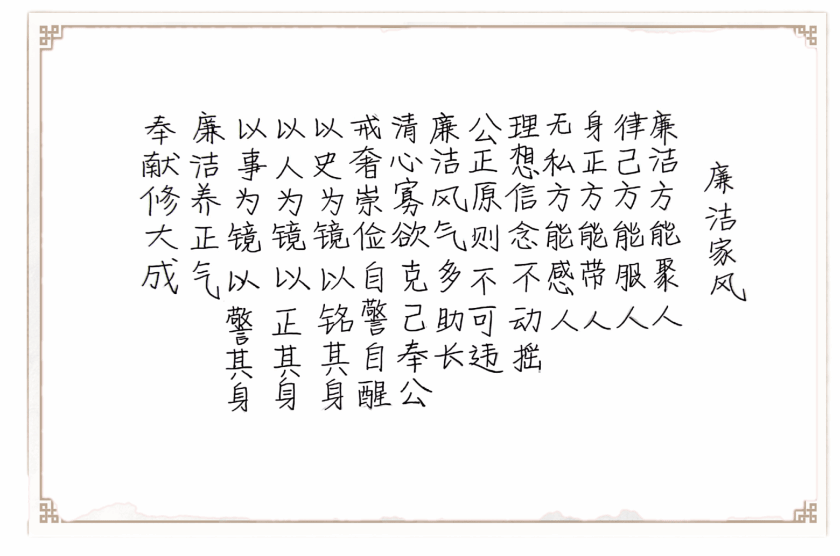 廉洁家风
廉洁方能聚人
律己方能服人
身正方能带人
无私方能感人
理想信念不动摇
公正原则不可违
廉洁风气多助长
清心寡欲克己奉公
戒奢崇俭自警自醒
以史为镜以铭其身
以人为镜以正其身
以事为镜以警其身
廉洁养正气
奉献修大成